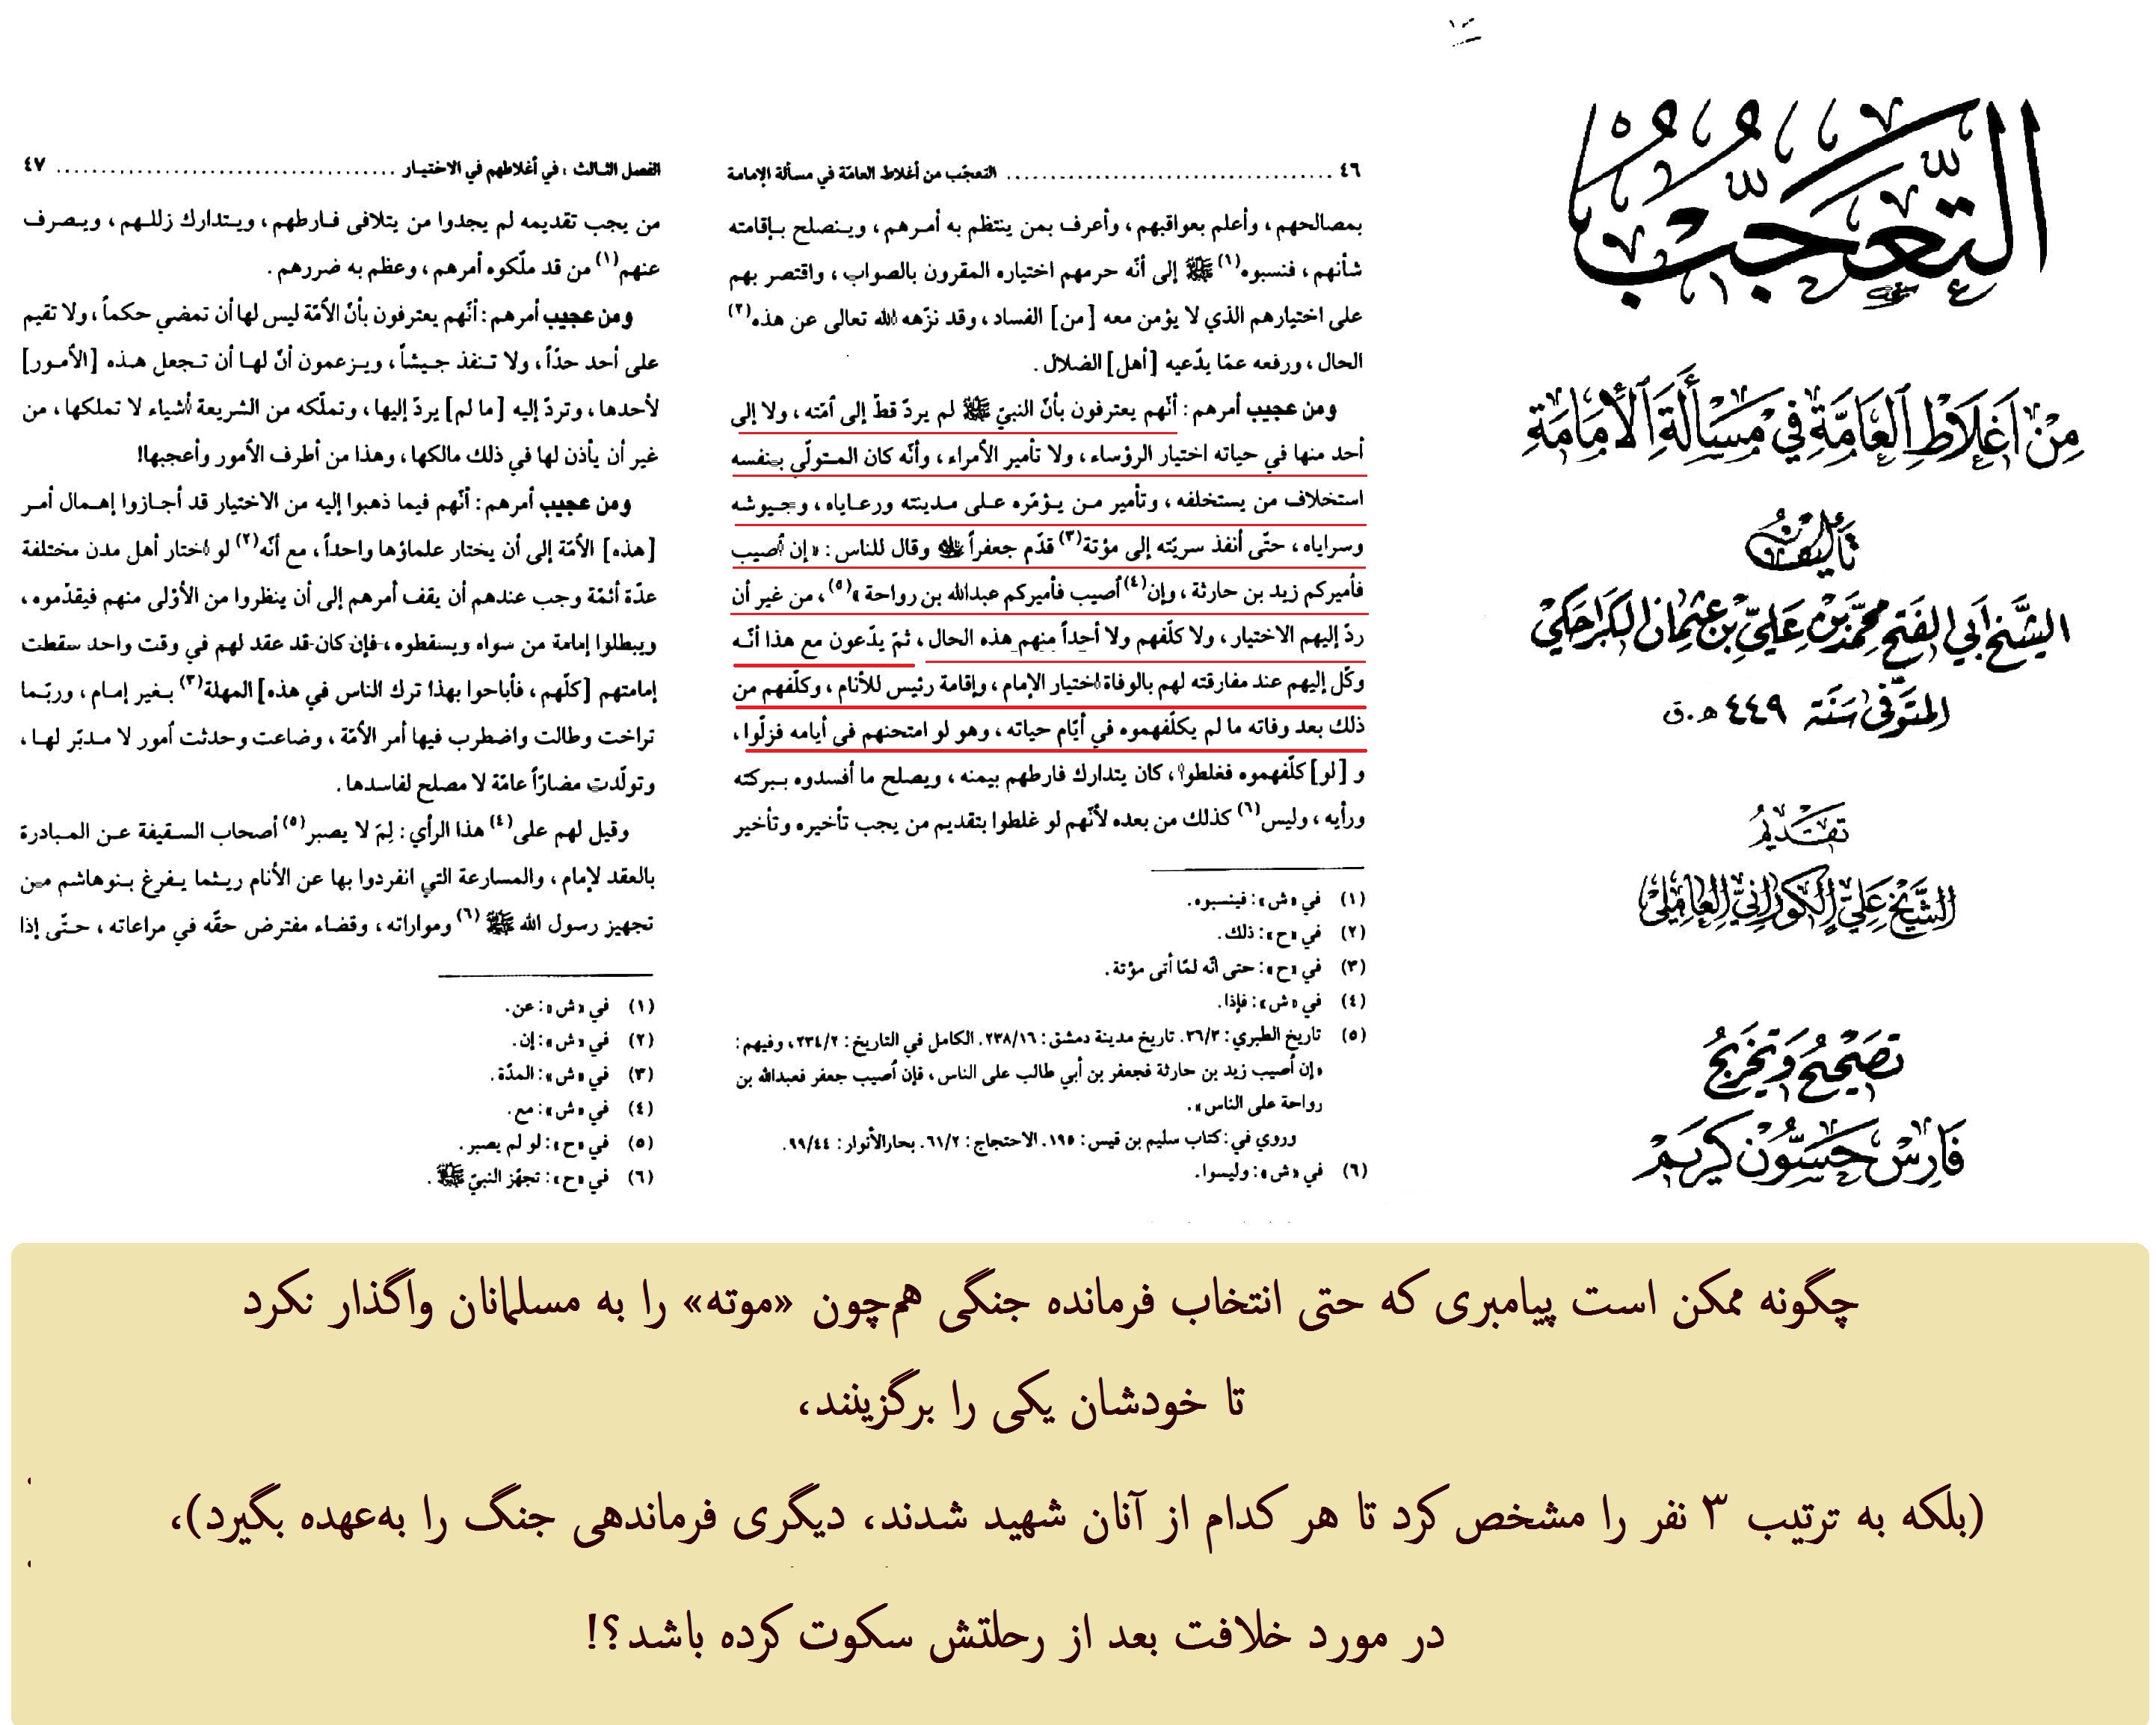 التعجب
من أغلاط العامة في مسألة الإمامة
تأليف
الشيخ أبي الفتح محمد بن علي بن عثمان الكراجكي
المتوفى سنة ٤٤٩ هـ.ق
تقديم
الشيخ علي الكوراني العاملي
تصحيح وتخريج
فارس حسون كريم
٤٦ ........ التعجّب من أغلاط العامّة في مسألة الإمامة
بمصالحهم ، وأعلم بعواقبهم ، وأعرف بمن ينتظم به أمرهم ، وينصلح بإقامته
شأنهم ، فنسبوه(١) ﷺ إلى أنّه حرمهم اختياره المقرون بالصواب ، واقتصر بهم
على اختيارهم الذي لا يؤمن معه [من] الفساد ، وقد نزّهه الله تعالى عن هذه(٢)
الحال ، ورفعه عمّا يدّعيه [أهل] الضلال .
ومن عجيب أمرهم : أنّهم يعترفون بأنّ النبيّ ﷺ لم يردّ قطّ إلى اُمّته ، ولا إلى
أحد منها في حياته اختيار الرؤساء ، ولا تأمير الأمراء ، وأنّه كان المتولّي بنفسه
استخلاف من يستخلفه ، وتأمير من يؤمّره على مدينته ورعاياه ، وجيوشه
وسراياه ، حتّى أنفذ سريّته إلى مؤتة(٣) قدّم جعفراً وقال للناس : «إن اُصيب
فأميركم زيد بن حارثة ، وإن(٤) اُصيب فأميركم عبدالله بن رواحة»(٥) ، من غير أن
ردّ إليهم الاختيار ، ولا كلّفهم ولا أحداً منهم هذه الحال ، ثمّ يدّعون مع هذا أنّه
وكّل إليهم عند مفارقته لهم بالوفاة اختيار الإمام ، وإقامة رئيس للأنام ، وكلّفهم من
ذلك بعد وفاته ما لم يكلّفهموه في أيّام حياته ، وهو لو امتحنهم في أيامه فزلّوا ،
و [لو] كلّفهموه فغلطوا ، كان يتدارك فارطهم بيمنه ، ويصلح ما أفسدوه ببركته
ورأيه ، وليس(٦) كذلك من بعده لأنّهم لو غلطوا بتقديم من يجب تأخيره وتأخير
(١) في «ش» : فينسبوه.
(٢) في «ح» : ذلك.
(٣) في «ح» : حتى انّه لمّا أتى مؤتة.
(٤) في «ش» : فإذا.
(٥) تاريخ الطبري : ٣٦/٣. تاريخ مدينة دمشق : ٢٣٨/١٦. الكامل في التاريخ : ٢٣٤/٢ ، وفيهم :
«إن اُصيب زيد بن حارثة فجعفر بن أبي طالب على الناس ، فإن اُصيب جعفر فعبدالله بن
رواحة على الناس».
وروي في : كتاب سليم بن قيس : ١٩٥. الاحتجاج : ٦١/٢. بحارالأنوار : ٩٩/٤٤.
(٦) في «ش» : وليسوا.
الفصل الثالث : في أغلاطهم في الاختيار ........ ٤٧
من يجب تقديمه لم يجدوا من يتلافى فارطهم ، ويتدارك زللهم ، ويصرف
عنهم(١) من قد ملّكوه أمرهم ، وعظم به ضررهم .
ومن عجيب أمرهم : أنّهم يعترفون بأنّ الاُمّة ليس لها أن تمضي حكماً ، ولا تقيم
على أحد حدّاً ، ولا تنفذ جيشاً ، ويزعمون أنّ لها أن تجعل هذه [الاُمور]
لأحدها ، وتردّ إليه [ما لم] يردّ إليها ، وتملّكه من الشريعة أشياء لا تملكها ، من
غير أن يأذن لها في ذلك مالكها ، وهذا من أطرف الاُمور وأعجبها!
ومن عجيب أمرهم : أنّهم فيما ذهبوا إليه من الاختيار قد أجازوا إهمال أمر
[هذه] الاُمّة إلى أن يختار علماؤها واحداً ، مع أنّه(٢) لو اختار أهل مدن مختلفة
عدّة أئمّة وجب عندهم أن يقف أمرهم إلى أن ينظروا من الأوْلى منهم فيقدّموه ،
ويبطلوا إمامة من سواه ويسقطوه ، فإن كان قد عقد لهم في وقت واحد سقطت
إمامتهم [كلّهم ، فأباحوا بهذا ترك الناس في هذه] المهلة(٣) بغير إمام ، وربّما
تراخت وطالت واضطرب فيها أمر الاُمّة ، وضاعت وحدثت اُمور لا مدبّر لها ،
وتولّدت مضارّاً عامّة لا مصلح لفاسدها .
وقيل لهم على(٤) هذا الرأي : لِمَ لا يصبر(٥) أصحاب السقيفة عن المبادرة
بالعقد لإمام ، والمسارعة التي انفردوا بها عن الأنام ريثما يفرغ بنوهاشم من
تجهيز رسول الله ﷺ(٦) ومواراته ، وقضاء مفترض حقّه في مراعاته ، حتّى إذا
(١) في «ش» : عن.
(٢) في «ش» : إن.
(٣) في «ش» : المدّة.
(٤) في «ش» : مع.
(٥) في «ح» : لو لم يصبر.
(٦) في «ح» : تجهّز النبيّ ﷺ .
چگونه ممکن است پیامبری که حتی انتخاب فرمانده جنگی هم‌چون «موته» را به مسلمانان واگذار نکرد
تا خودشان یکی را برگزینند،
(بلکه به ترتیب ۳ نفر را مشخص کرد تا هر کدام از آنان شهید شدند، دیگری فرماندهی جنگ را به‌عهده بگیرد)،
در مورد خلافت بعد از رحلتش سکوت کرده باشد؟!